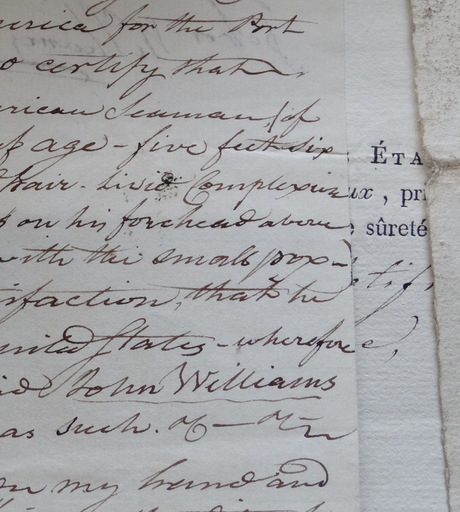 erica for the Port
o certify that
erican Seaman / of
of age - five feet six
hair - livid Complexion
s on his forehead above
with the small pox -
isfaction, that he
nited States - wherefore
id John Williams
as such. &c - &c
my hand and
ÉTA
ux, pri
sûreté